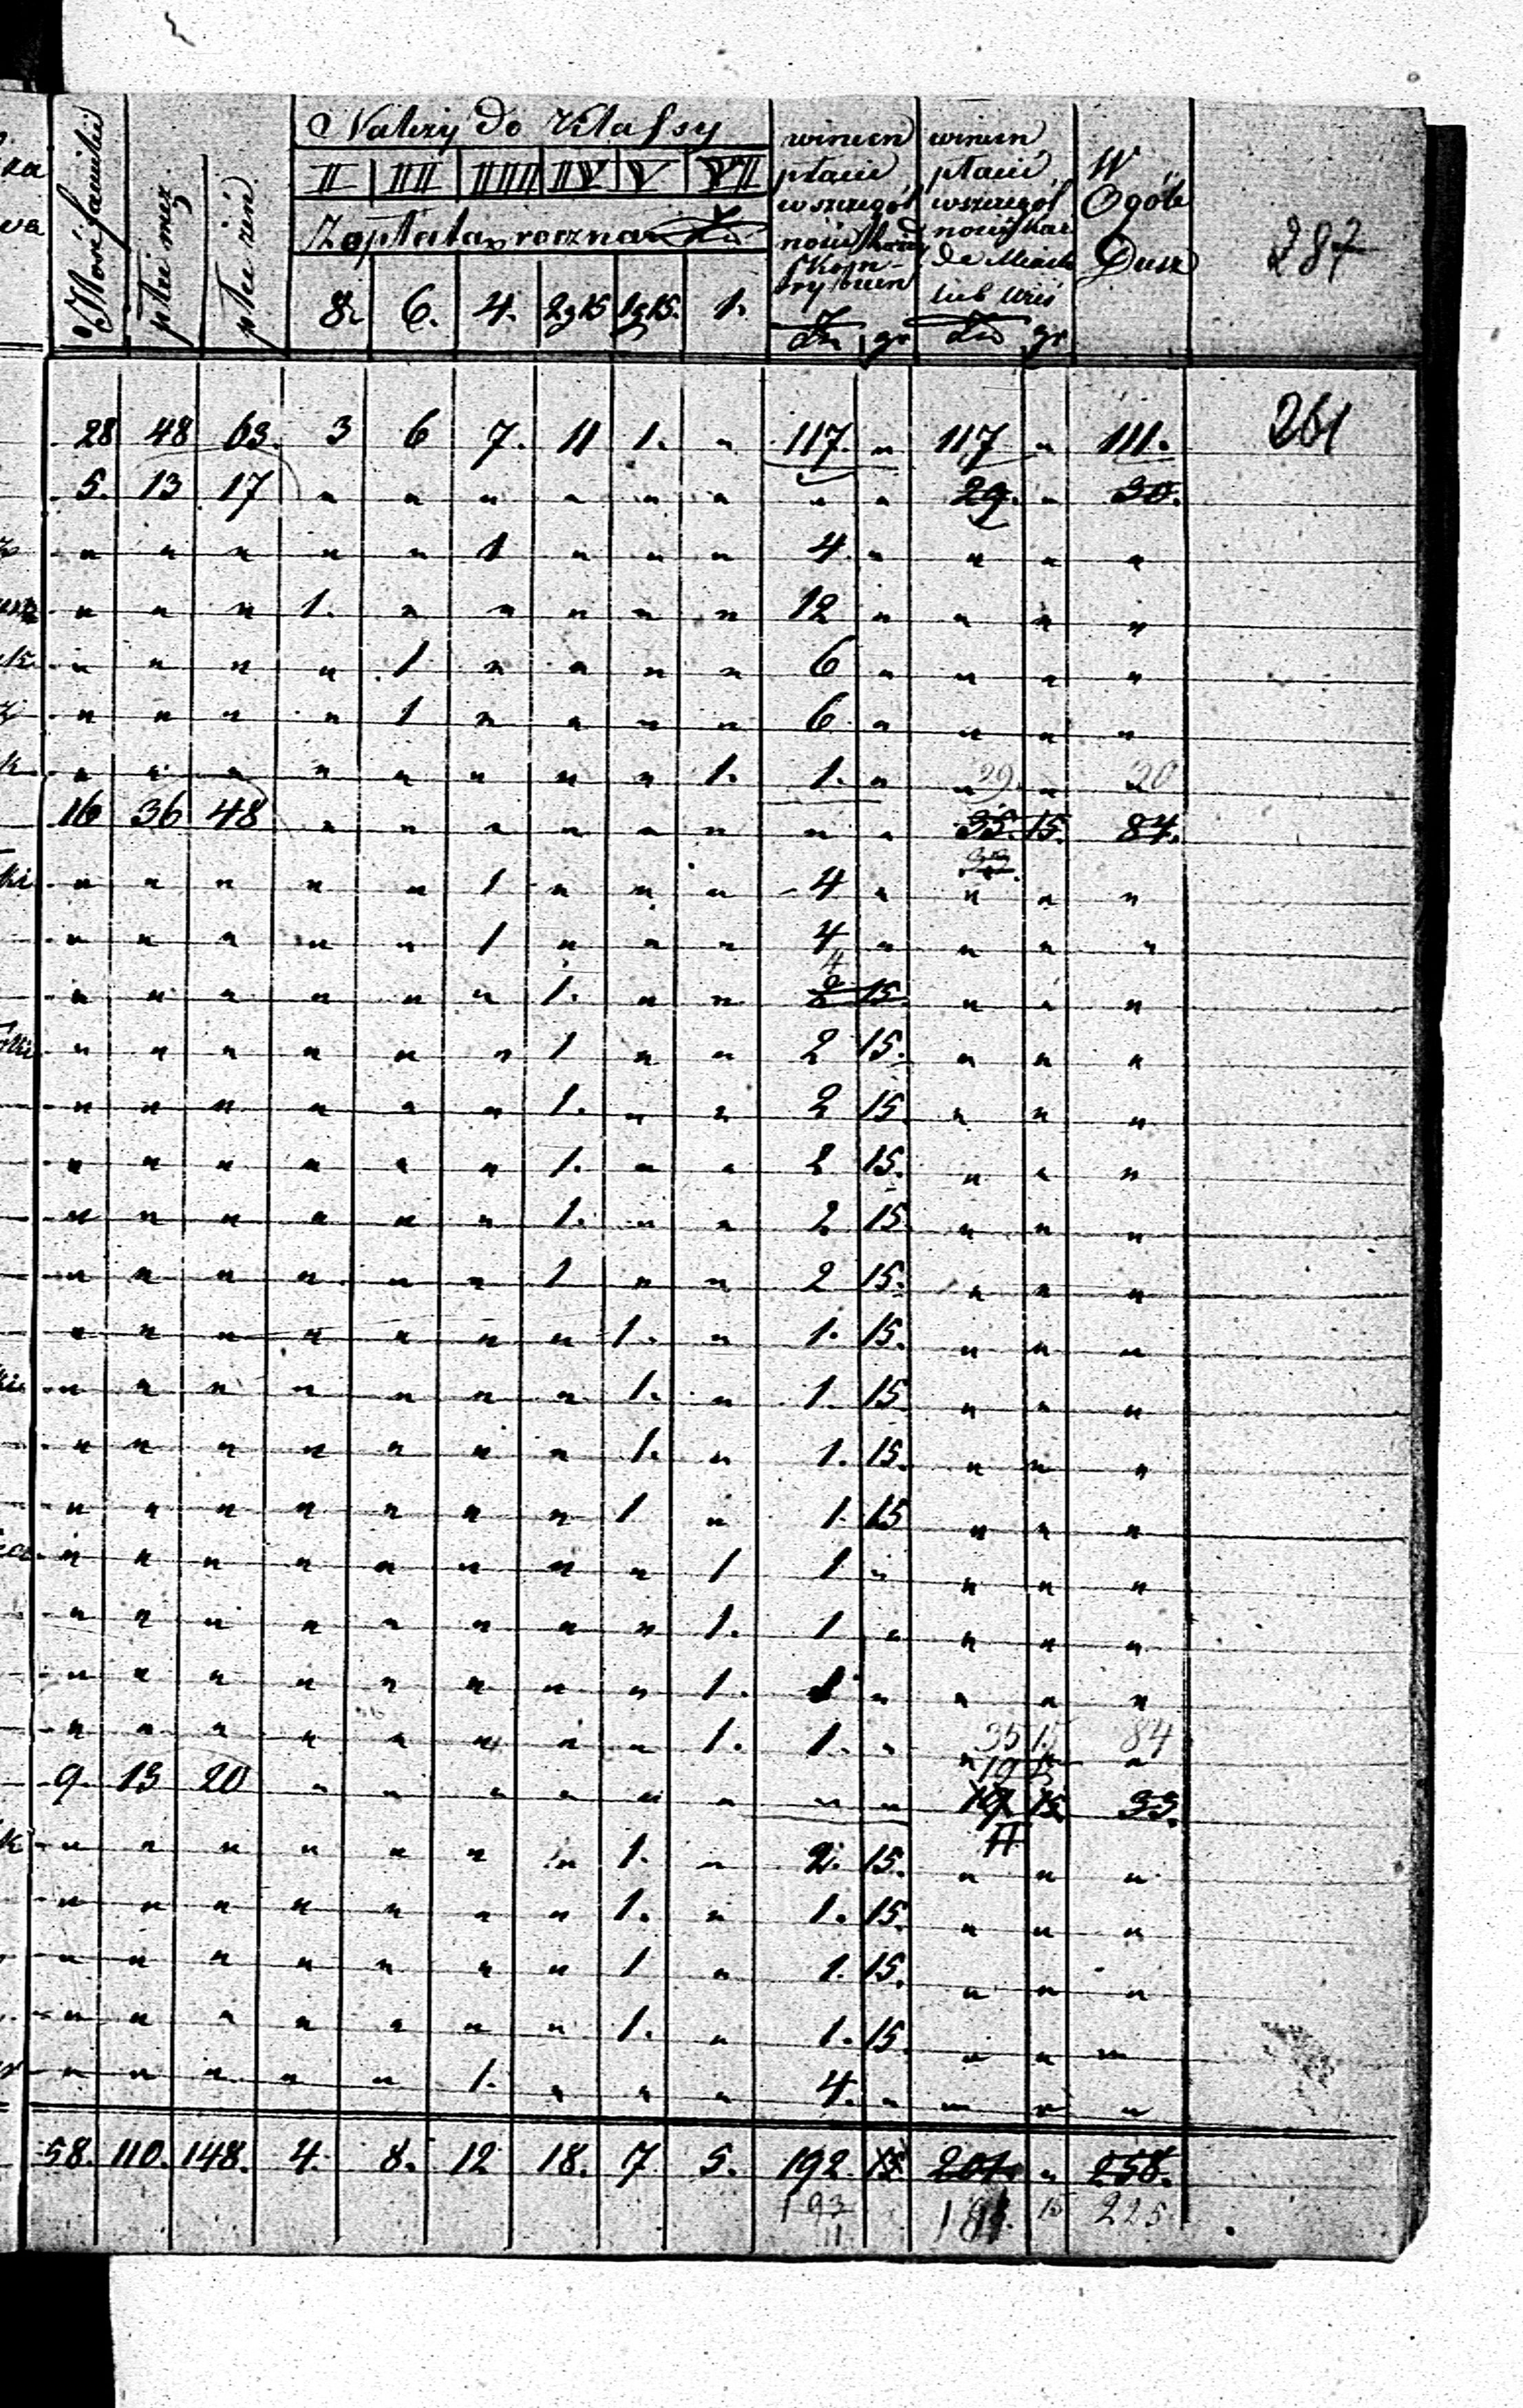 Ilość familii | płci męz. | płci żeń. | Należy do Klassy | winien płacić w szczególności każdy Kontrybuent | winien płacić w szczególności każde Miasto lub Wieś | W Ogóle Dusz | 287
II | III | IIII | IV | V | VI
Zapłata roczna Zło
8. | 6. | 4. | 2 g 15 | 1 g 15. | 1.
Zło | gr | Zło | gr
28 | 48 | 63. | 3 | 6 | 7. | 11 | 1. | " | 117. | " | 117 | " | 111. | 261
5. | 13 | 17 | " | " | " | " | " | " | " | " | 29. | " | 30.
" | " | " | " | " | 1 | " | " | " | 4 | " | " | " | "
" | " | " | 1. | " | " | " | " | " | 12 | " | " | " | "
" | " | " | " | 1 | " | " | " | " | 6 | " | " | " | "
" | " | " | " | 1 | " | " | " | " | 6 | " | " | " | "
" | " | " | " | " | " | " | " | 1. | 1. | " | 29. | " | 30
16 | 36 | 48 | " | " | " | " | " | " | " | " | 35. | 15. | 84.
" | " | " | " | " | 1 | " | " | " | 4 | " | " | " | "
" | " | " | " | " | 1 | " | " | " | 4 | " | " | " | "
4
" | " | " | " | " | " | 1. | " | " | 2 | 15 | " | " | "
" | " | " | " | " | " | 1 | " | " | 2 | 15. | " | " | "
" | " | " | " | " | " | 1. | " | " | 2 | 15 | " | " | "
" | " | " | " | " | " | 1. | " | " | 2 | 15. | " | " | "
" | " | " | " | " | " | 1. | " | " | 2 | 15 | " | " | "
" | " | " | " | " | " | 1 | " | " | 2 | 15. | " | " | "
" | " | " | " | " | " | " | 1. | " | 1. | 15. | " | " | "
" | " | " | " | " | " | " | 1. | " | 1. | 15 | " | " | "
" | " | " | " | " | " | " | 1. | " | 1. | 15. | " | " | "
" | " | " | " | " | " | " | 1 | " | 1. | 15 | " | " | "
" | " | " | " | " | " | " | " | 1 | 1 | " | " | " | "
" | " | " | " | " | " | " | " | 1. | 1 | " | " | " | "
" | " | " | " | " | " | " | " | 1. | 1 | " | " | " | "
" | " | " | " | " | " | " | " | 1. | 1. | " | 35 | 15 | 84
9. | 13 | 20 | " | " | " | " | " | " | " | " | 19 | 15 | 33.
" | " | " | " | " | " | " | 1. | " | 2. | 15. | " | " | "
" | " | " | " | " | " | " | 1. | " | 1. | 15. | " | " | "
" | " | " | " | " | " | " | 1 | " | 1. | 15. | " | " | "
" | " | " | " | " | " | " | 1. | " | 1. | 15. | " | " | "
" | " | " | " | " | 1. | " | " | " | 4. | " | " | " | "
58. | 110. | 148. | 4. | 8. | 12 | 18. | 7 | 5. | 192. | 15 | 201. | " | 258.
193 | 15 | 225
11